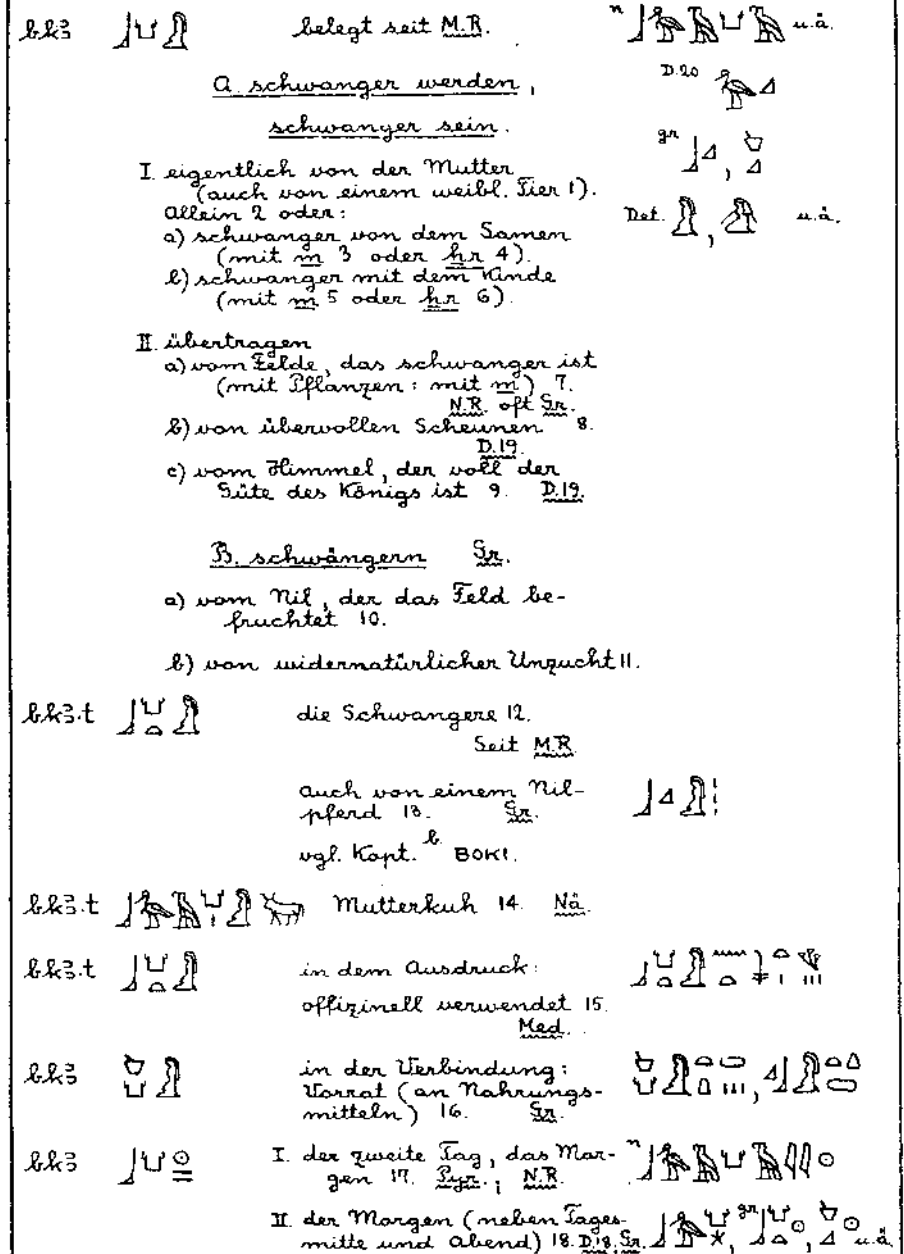 bkꜣ belegt seit M.R. n u.ä.
A. schwanger werden, D.20
schwanger sein. gr
I. eigentlich von der Mutter
(auch von einem weibl. Tier 1).
Allein 2 oder: Det. u.ä.
a) schwanger von dem Samen
(mit m 3 oder ẖr 4).
b) schwanger mit dem Kinde
(mit m 5 oder ẖr 6).
II. übertragen
a) vom Felde, das schwanger ist
(mit Pflanzen: mit m) 7.
N.R. oft Gr.
b) von übervollen Scheunen 8.
D.19.
c) vom Himmel, der voll der
Güte des Königs ist 9. D.19.
B. schwängern Gr.
a) vom Nil, der das Feld be-
fruchtet 10.
b) von widernatürlicher Unzucht 11.
bkꜣ.t die Schwangere 12.
Seit M.R.
auch von einem Nil-
pferd 13. Gr.
vgl. Kopt. b ⲂⲞⲔⲒ.
bkꜣ.t Mutterkuh 14. Nä.
bkꜣ.t in dem Ausdruck:
offizinell verwendet 15.
Med.
bkꜣ in der Verbindung:
Vorrat (an Nahrungs-
mitteln) 16. Gr.
bkꜣ I. der zweite Tag, das Mor- n
gen 17. Pyr., N.R.
II. der Morgen (neben Tages- gr
mitte und Abend) 18. D.18, Gr. u.ä.